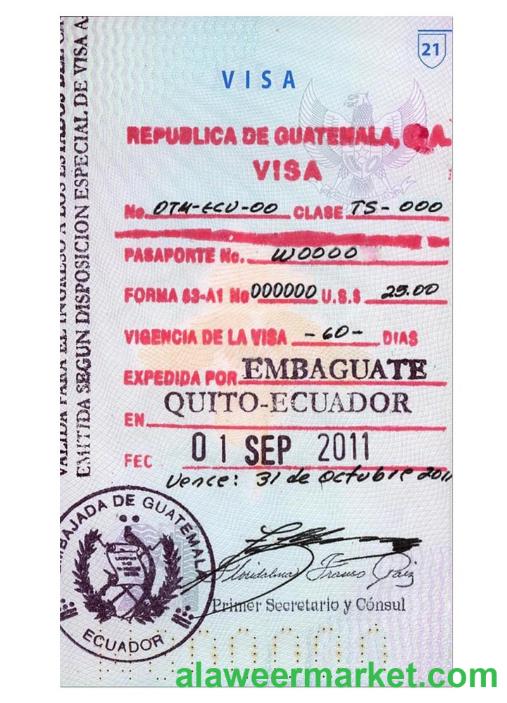 21
VISA
VALIDA PARA EL INGRESO A LOS ESTADOS DEL CA
EMITIDA SEGUN DISPOSICION ESPECIAL DE VISA A
REPUBLICA DE GUATEMALA, C.A.
VISA
No. OTM-ECU-00 CLASE TS-000
PASAPORTE No. W0000
FORMA 63-A1 No 000000 U.S.$ 25.00
VIGENCIA DE LA VISA -60- DIAS
EXPEDIDA POR EMBAGUATE
EN QUITO-ECUADOR
FEC 01 SEP 2011
Vence: 31 de Octubre 2011
BAJADA DE GUATEMAL
ECUADOR
Primer Secretario y Cónsul
alaweermarket.com